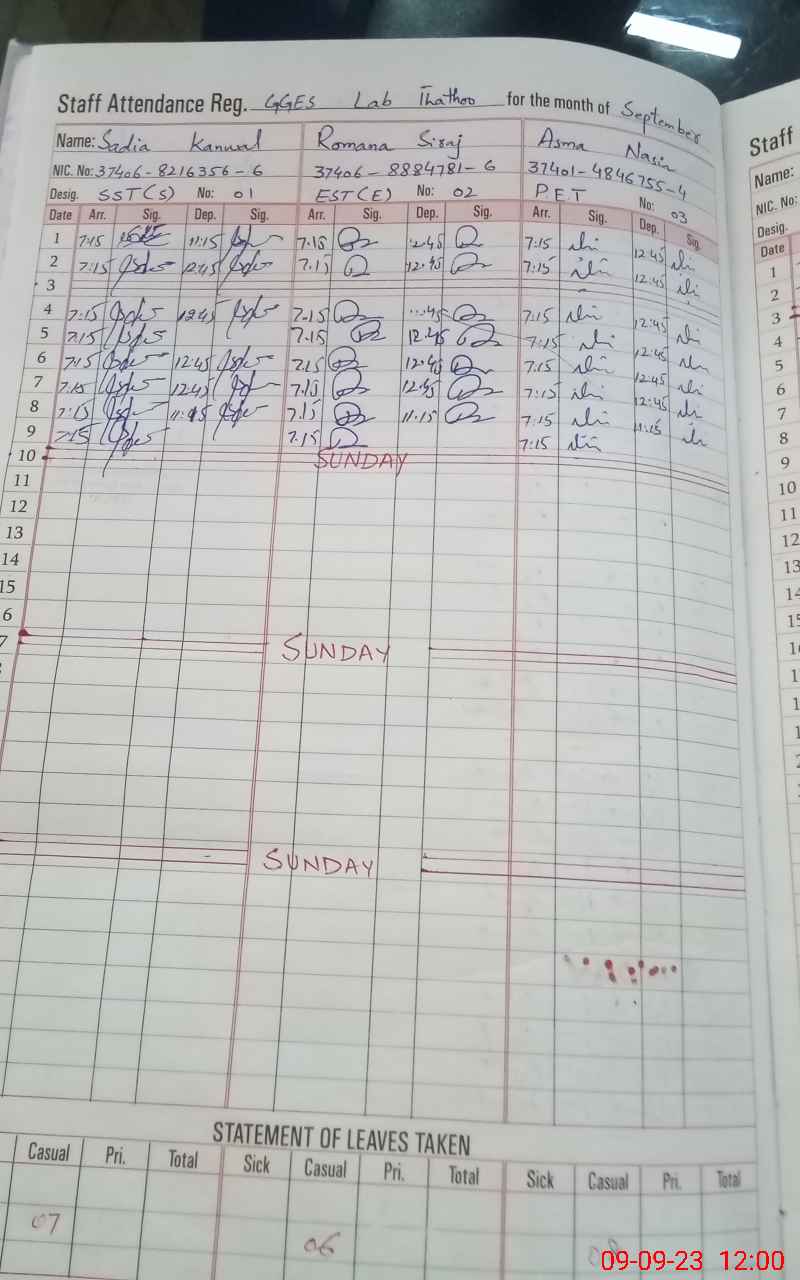 Staff Attendance Reg. GGES Lab Thathoo for the month of September
Name: Sadia Kanwal Romana Siraj Asma Nasir
NIC. No: 37406-8216356-6 37406-8884781-6 37401-4846755-4
Desig. SST(S) No: 01 EST(E) No: 02 P.E.T No: 03
Date Arr. Sig. Dep. Sig. Arr. Sig. Dep. Sig. Arr. Sig. Dep. Sig.
1 7:15 11:15 7.15 12.45 7:15 12:45
2 7:15 12:45 7.15 12.45 7:15 12:45
3
4 7:15 12:45 7.15 7:15 12:45
5 7:15 7.15 12.45 7:15 12:45
6 7:15 12:45 7.15 12.45 7:15 12:45
7 7:15 12:45 7.15 12.45 7:15 12:45
8 7:15 11:15 7.15 11.15 7:15 11:15
9 7:15 7.15 7:15
10 SUNDAY
11
12
13
14
15
6
7 SUNDAY
SUNDAY
STATEMENT OF LEAVES TAKEN
Casual Pri. Total Sick Casual Pri. Total Sick Casual Pri. Total
07 06
Staff
Name:
NIC. No:
Desig.
Date
1
2
3
4
5
6
7
8
9
10
11
12
13
09-09-23 12:00